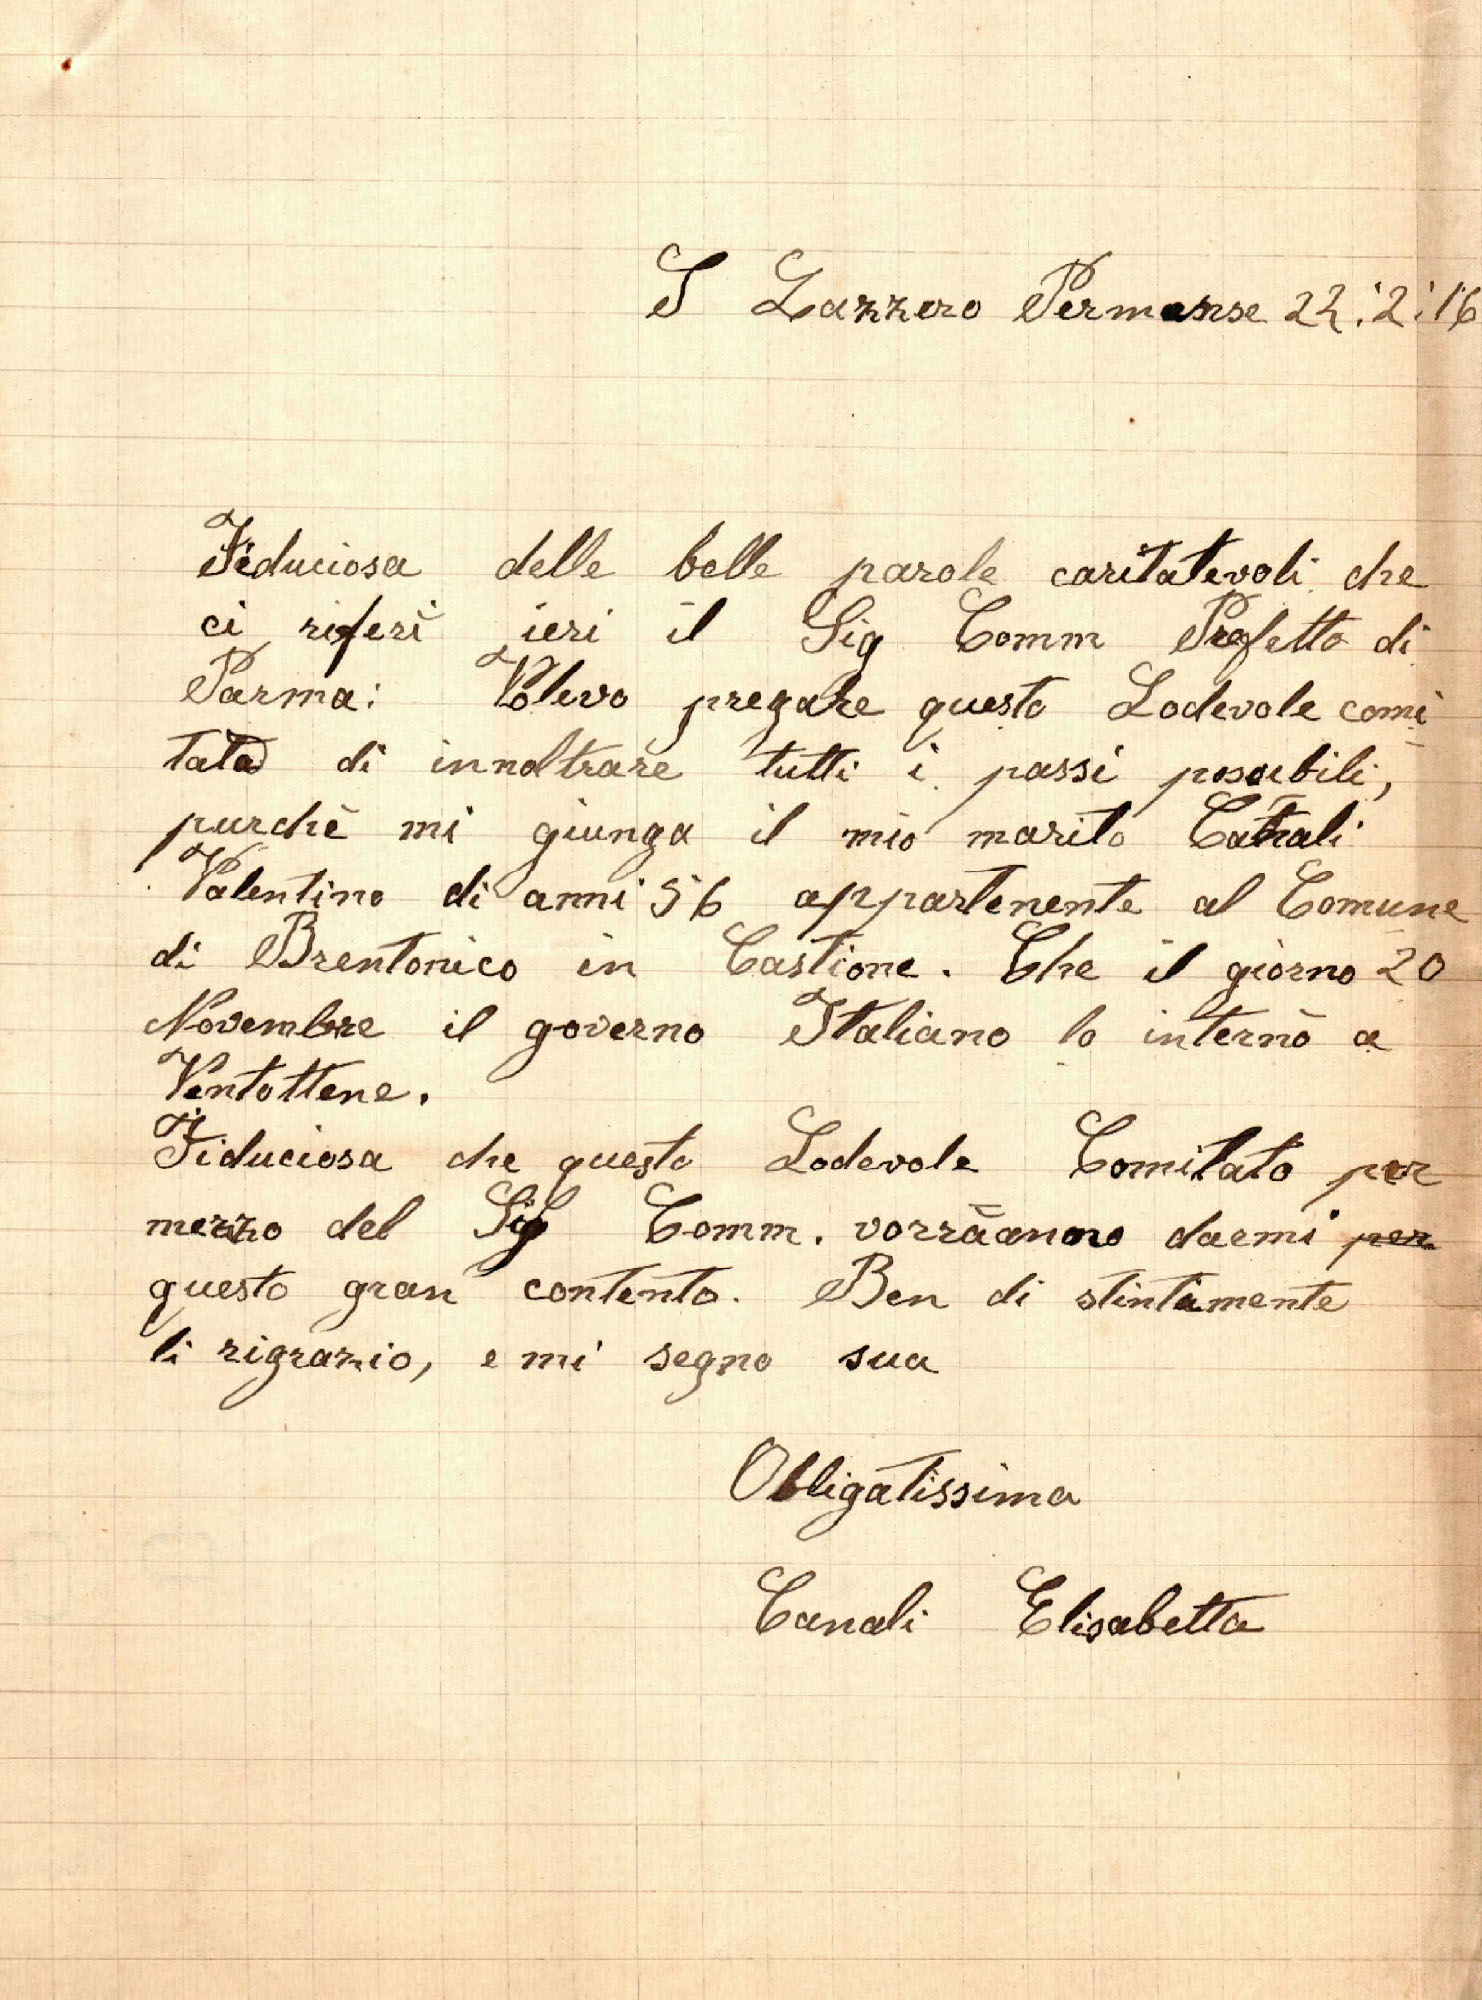 S Lazzero Permense 22:2:16
Fiduciosa delle belle parole caritatevoli che
ci riferì ieri il Sig Comm Prefetto di
Parma: Volevo pregare questo Lodevole comi
tato di innoltrare tutti i passi possibili,
purchè mi giunga il mio marito Canali
Valentino di anni 56 appartenente al Comune
di Brentonico in Castione. Che il giorno 20
Novembre il governo Italiano lo internò a
Ventottene.
Fiduciosa che questo Lodevole Comitato per
mezzo del Sig Comm. vorràanno darmi per
questo gran contento. Ben di stintamente
li rigrazio, e mi segno sua
Obligatissima
Canali Elisabetta